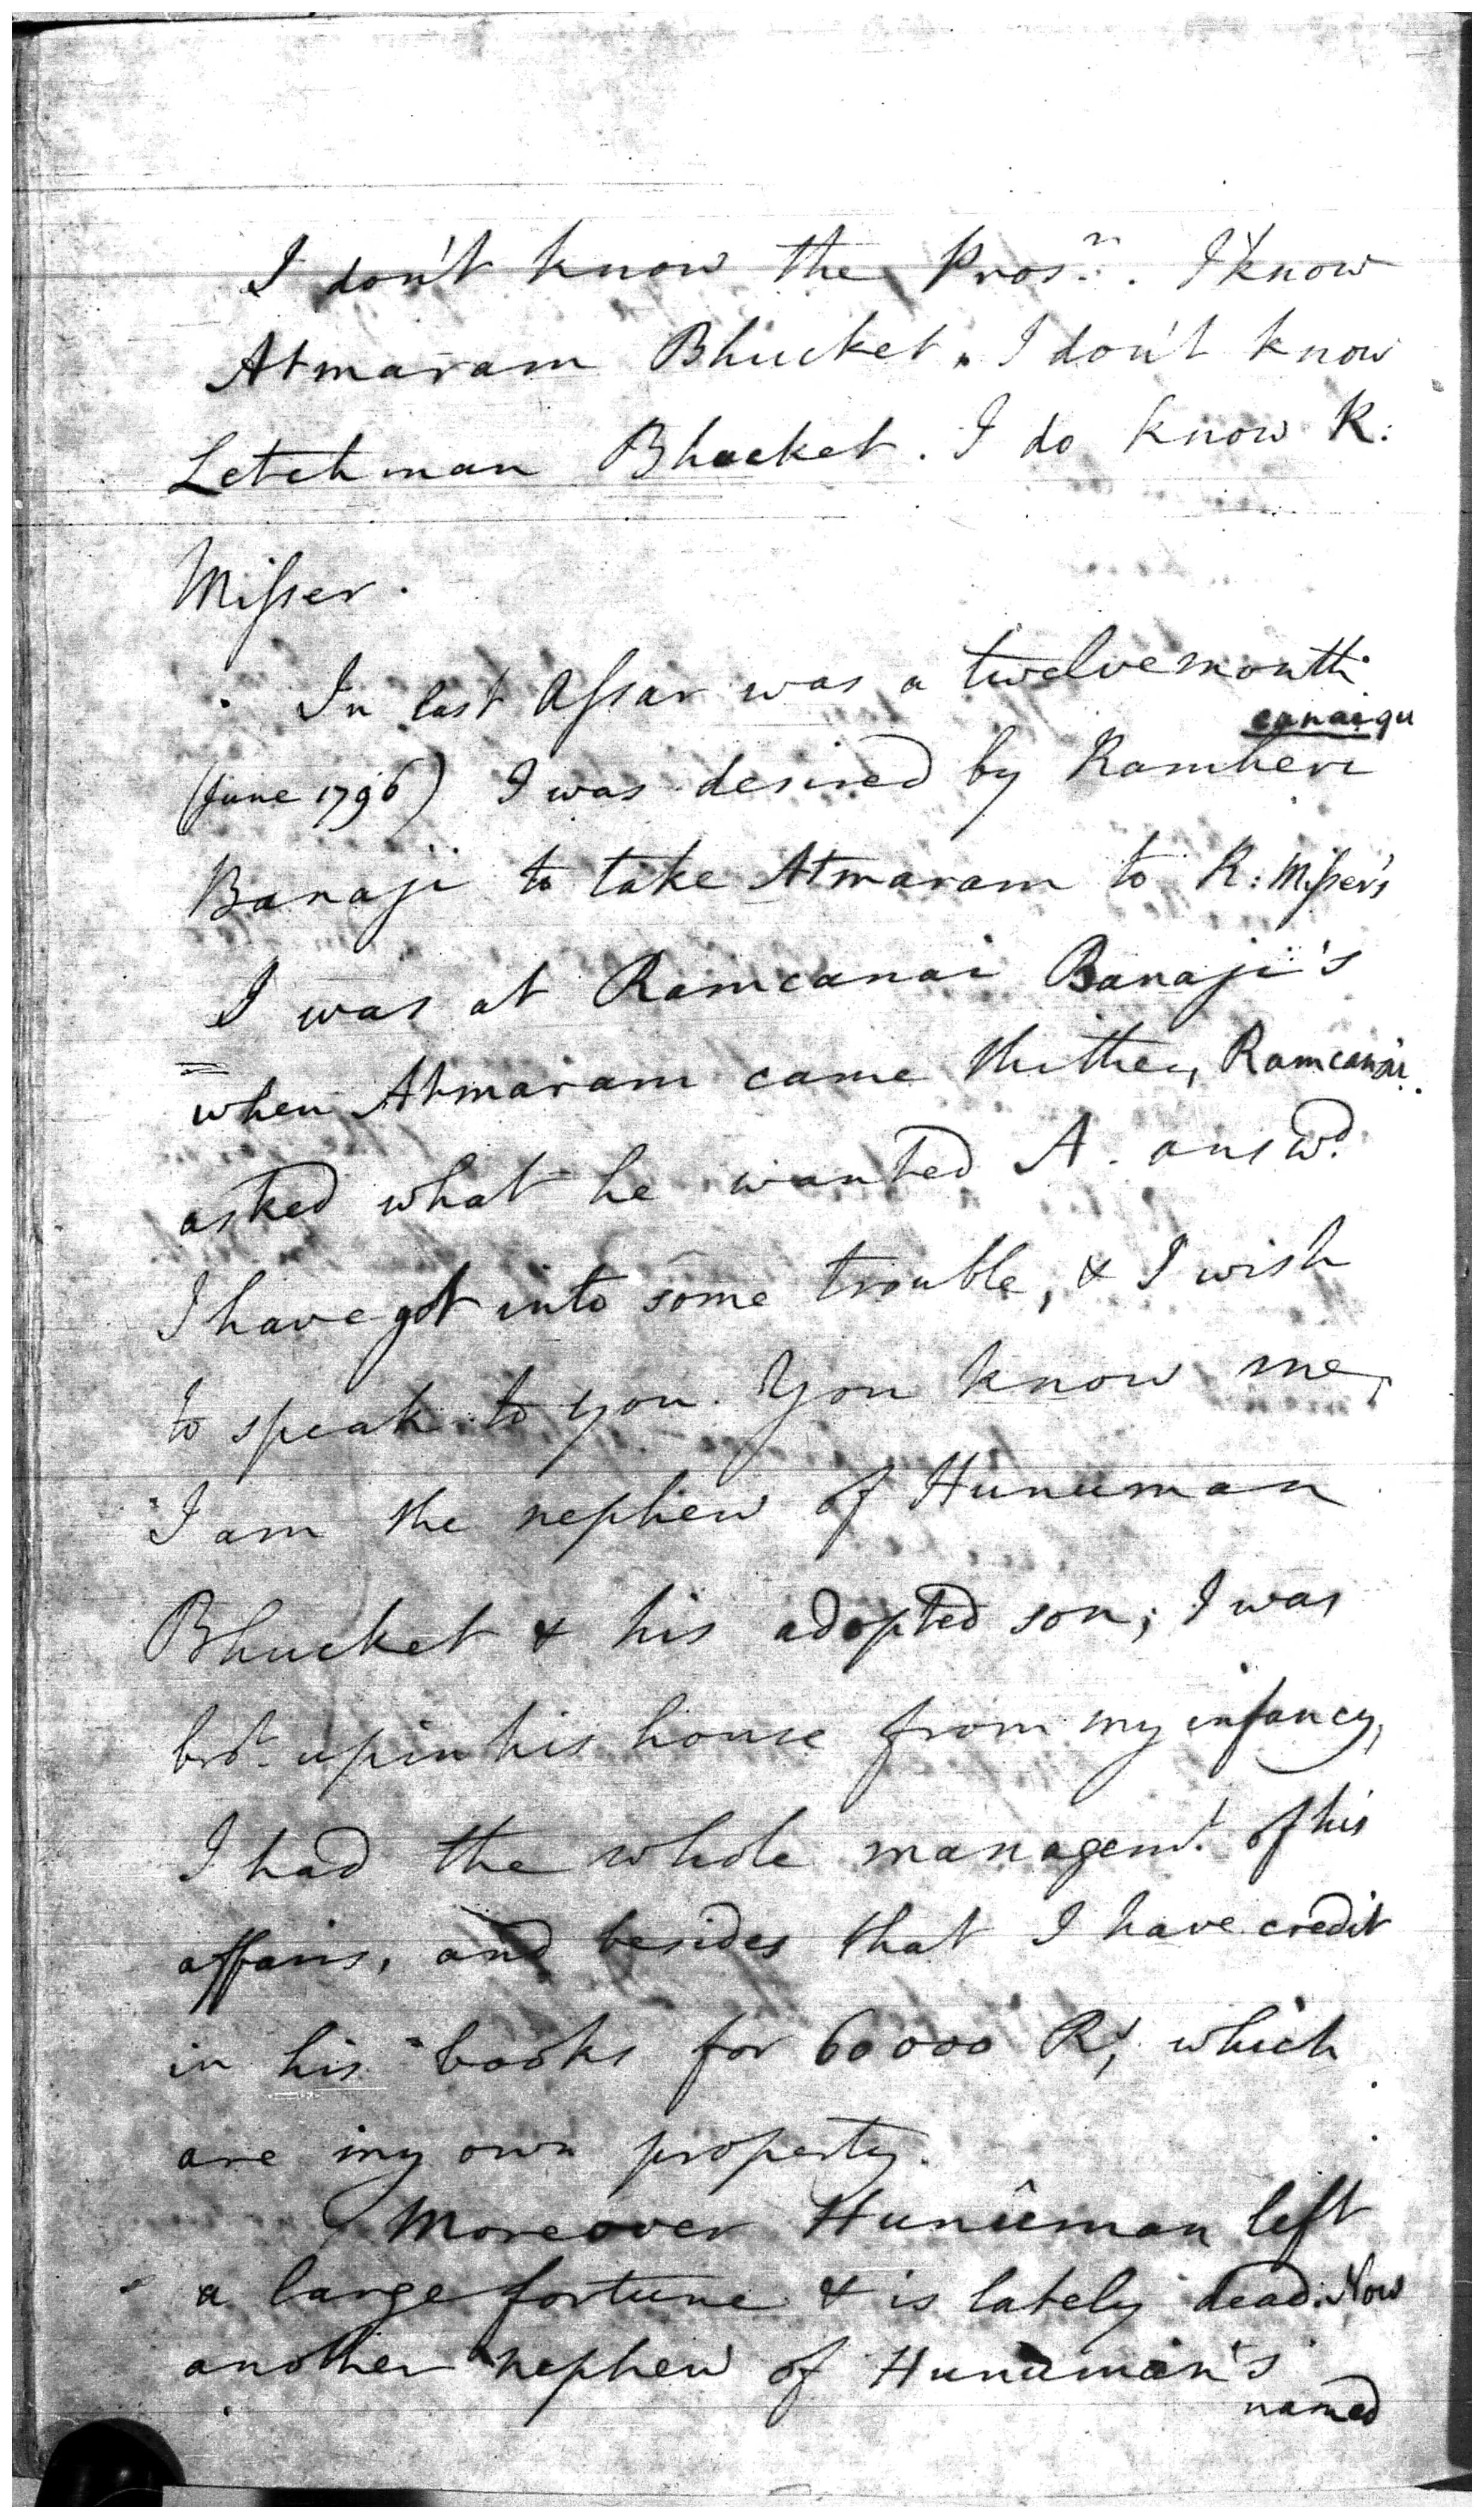 I don't know the Pros.n. I know
Atmaram Bhucket. I don't know
Letchman Bhucket. I do know R:
Misser.
In last Assar was a twelvemonth
canai qu
(June 1796) I was desired by Ramheri
Banaji to take Atmaram to R: Misser's
I was at Ramcanai Banaji's
when Atmaram came thither, Ramcanai
asked what he wanted A. answd.
I have got into some trouble, & I wish
to speak to you. You know me,
I am the nephew of Hunuman
Bhucket & his adopted son; I was
brot. up in his house from my infancy,
I had the whole managemt. of his
affairs, and besides that I have credit
in his books for 60000 Rs, which
are my own property.
Moreover Hunûman left
a large fortune & is lately dead. Now
another nephew of Hunuman's
named